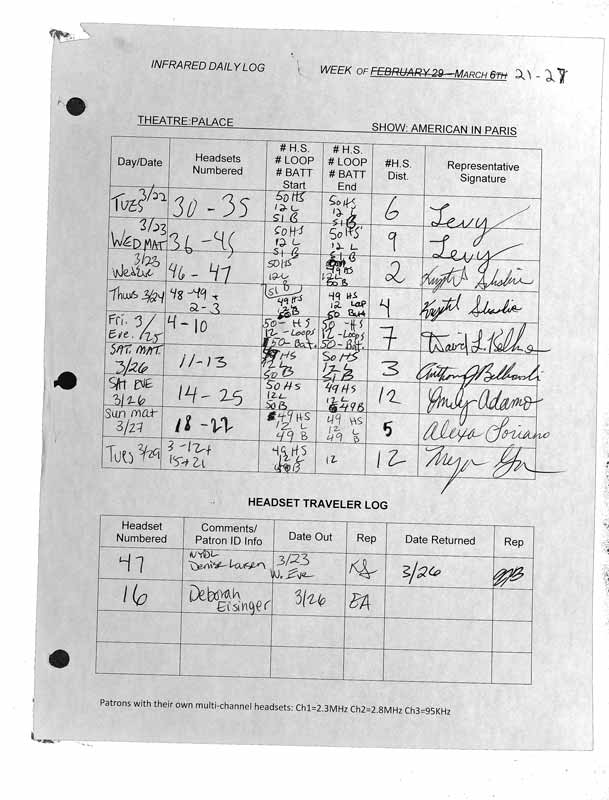 INFRARED DAILY LOG WEEK OF FEBRUARY 29 – MARCH 6TH 21-27
THEATRE:PALACE
SHOW: AMERICAN IN PARIS
Day/Date Headsets Numbered # H.S. # LOOP # BATT Start # H.S. # LOOP # BATT End #H.S. Dist. Representative Signature
TUES 3/22 30-35 50 HS 12 L 51 B 50 HS 12 L 51 B 6 Levy
3/23 WED MAT 36-45 50 HS 12 L 51 B 50 HS 12 L 51 B 9 Levy
3/23 Wed Eve 46-47 50 HS 12 L 51 B 49 HS 12 L 50 B 2
Thurs 3/24 48-49+ 2-3 49 HS 12 L 50 B 49 HS 12 Lap 50 Batt 4
Fri. 3/25 Eve. 4-10 50-HS 12-Loops 50-Bat. 50-HS 12-Loops 50-Bat. 7
SAT. MAT. 3/26 11-13 HS 12 L 50 B 50 HS 12 L 51 B 3
SAT EVE 3/26 14-25 50 HS 12 L 50 B 49 HS 12 L 49 B 12 Emily Adamo
Sun mat 3/27 18-22 49 HS 12 L 49 B 49 HS 12 L 49 B 5 Alexa Soriano
TUES 3/29 3-12+ 15+21 49 HS 12 L 49 B 12 12
HEADSET TRAVELER LOG
Headset Numbered Comments/ Patron ID Info Date Out Rep Date Returned Rep
47 NYDL Denise Larsen 3/23 W. Eve KS 3/26
16 Deborah Eisinger 3/26 EA
Patrons with their own multi-channel headsets: Ch1=2.3MHz Ch2=2.8MHz Ch3=95KHz